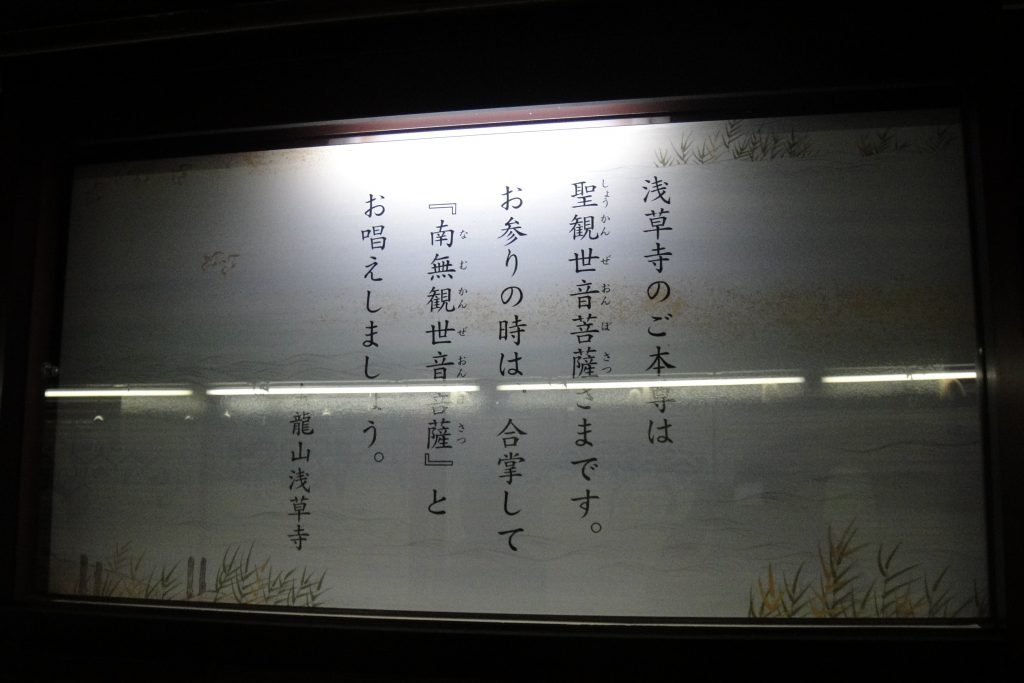 浅草寺のご本尊は
聖観世音菩薩さまです。
お参りの時は、合掌して
『南無観世音菩薩』と
お唱えしましょう。
龍山浅草寺